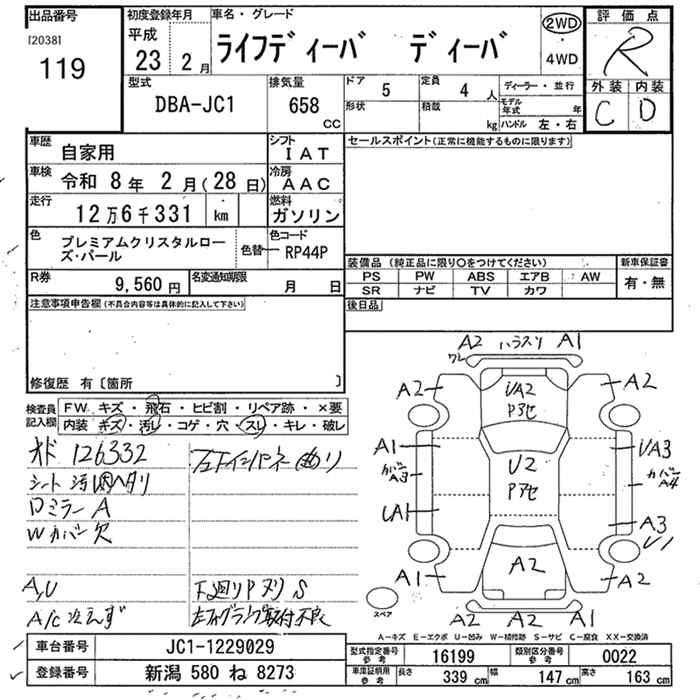 出品番号
[2038]
119
初度登録年月
平成
23 2月
車名・グレード
ライフディーバ ディーバ
2WD
・
4WD
評価点
R
外装 内装
C D
型式
DBA-JC1
排気量
658
CC
ドア 5
定員 4 人
形状
積載 kg
ディーラー・並行
モデル年式 年
ハンドル 左・右
車歴
自家用
シフト
IAT
車検 令和 8年 2月(28日)
冷房
AAC
走行
12万6千331 km
燃料
ガソリン
色
プレミアムクリスタルローズ・パール
色替
色コード
RP44P
R券
9,560円
名変通知期限
月 日
セールスポイント(正常に機能するものに限ります)
装備品(純正品に限り〇をつけてください)
PS PW ABS エアB AW
SR ナビ TV カワ
新車保証書
有・無
後日品
注意事項申告欄(不具合内容等は具体的に記入して下さい)
修復歴 有〔箇所 〕
検査員記入欄
FW キズ・飛石・ヒビ割・リペア跡・×要
内装 キズ・汚レ・コゲ・穴・スレ・キレ・破レ
オド 126332
左Fインパネ曲り
シート汚レ
Dミラー A
Wカバー欠
A,U
下廻りPヌリ S
A/C冷えず
左フォグランプ取付不良
A2 ハラスリ A1
ワレ
A2
A2
UA2
Pアセ
A1
UA3
カバー
A3
U2
Pアセ
カバー
A4
UA1
A3
U1
A1
A2
A2
スペア
A2 A2 A1
A－キズ E－エクボ U－凹み W－補修跡 S－サビ C－腐食 XX－交換済
車台番号 JC1-1229029
登録番号 新潟 580 ね 8273
型式指定番号参考 16199
類別区分番号参考 0022
車庫証明用参考 長さ 339 cm 幅 147 cm 高さ 163 cm